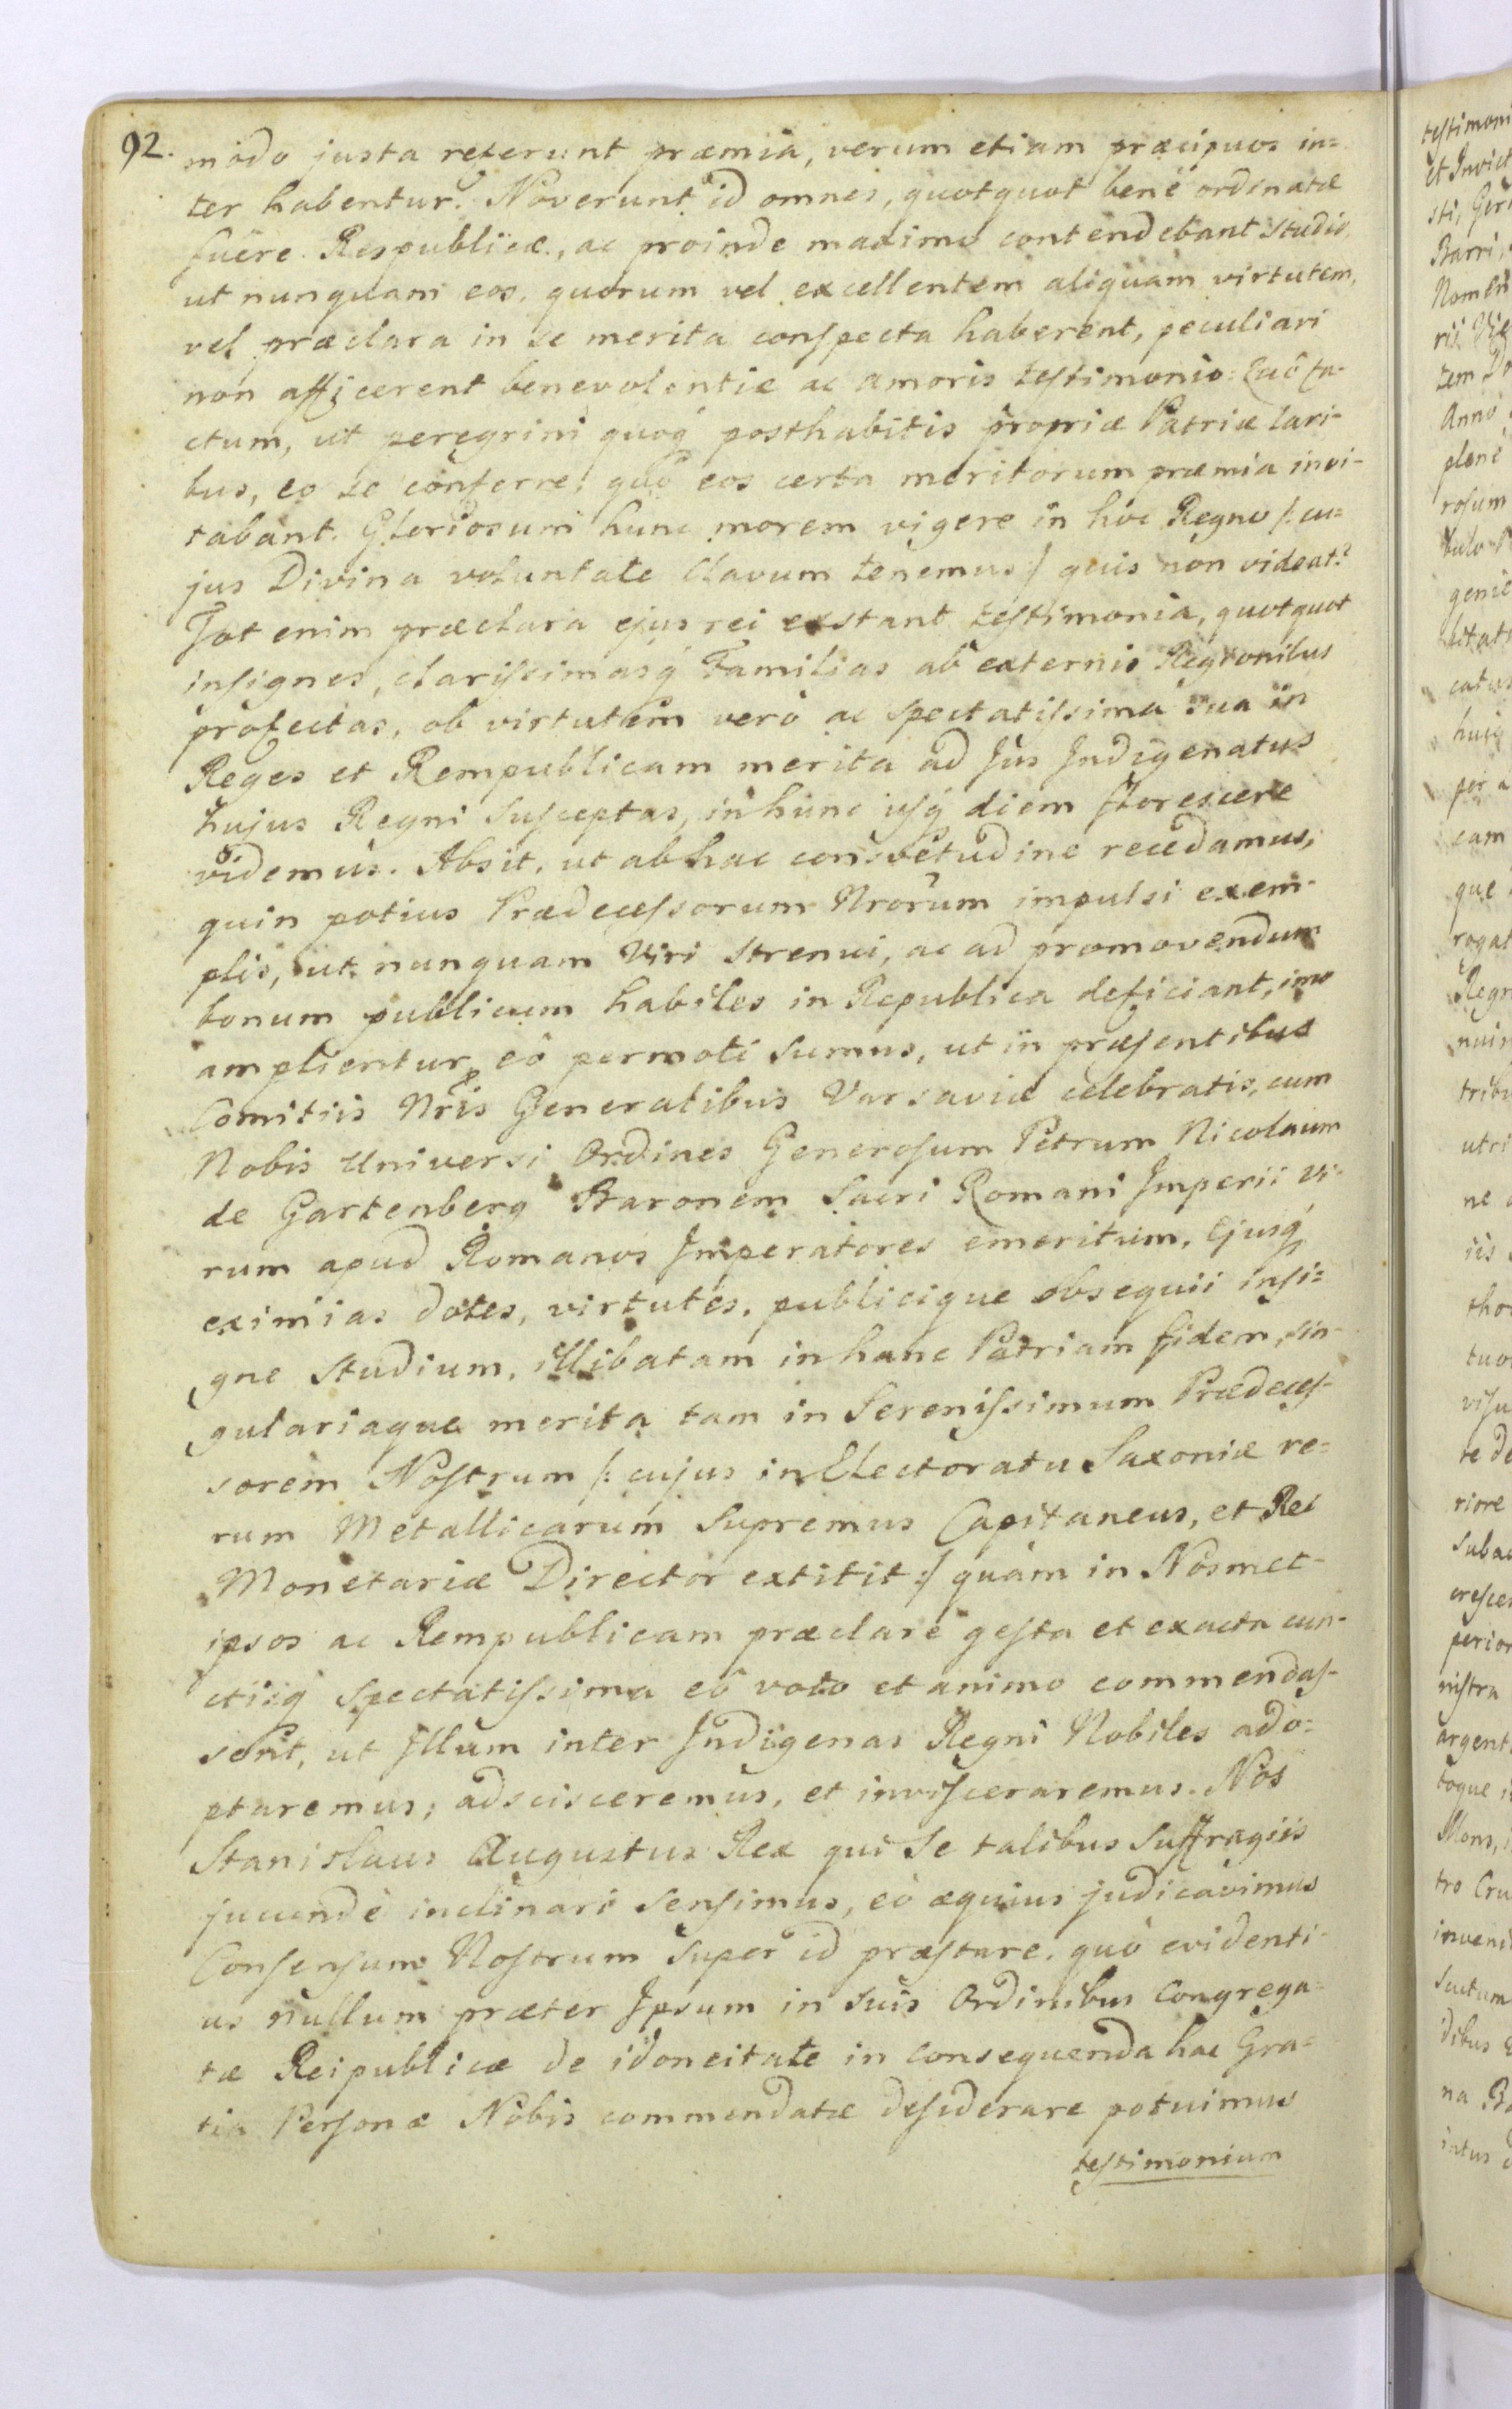 92.
modo justa referunt præmia, verum etiam præcipuos in=
ter habentur. Noverunt id omnes, quotquot benè ordinatæ
fuêre Respublicæ, ac proinde maximo contendebant studio,
ut nunquam eos, quorum vel excellentem aliquam virtutem,
vel præclara in se merita conspecta haberent, peculiari
non afficerent benevolentiæ ac amoris testimonio: Quô fa-
ctum, ut peregrini quoq́ posthabitis propriæ Patriæ lari-
bus, eo se conferre, quô eos certa meritorum præmia invi-
tabant. Gloriosum hunc morem vigere in hoc Regno /: cu=
jus Divina voluntate Clavum tenemus :/ quis non videat?
Tot enim præclara ejus rei exstant testimonia, quotquot
insignes, clarissimasq́ Familias ab externis Regionibus
profectas, ob virtutem verò ac spectatissima sua in
Reges et Rempublicam merita ad Jus Indigenatus
hujus Regni susceptas, in hunc usq́ diem florescere
videmus. Absit, ut ab hac consvetudine recedamus,
quin potius Prædecessorum Nrorum impulsi exem-
plis, ut nunquam Viri strenui, ac ad promovendum
bonum publicum habiles in Republica deficiant, imo
amplientur eô permoti sumus, ut in præsentibus
Comitiis Nris Generalibus Varsaviæ celebratis, cum
Nobis Universi Ordines Generosum Petrum Nicolaum
de Gartenberg Baronem Sacri Romani Imperii vi-
rum apud Romanos Imperatores emeritum, Ejusq́
eximias dotes, virtutes, publicique obsequii insi=
gne studium, illibatam in hanc Patriam fidem, sin-
gulariaque merita tam in Serenissimum Prædeces-
sorem Nostrum /: cujus in Electoratu Saxoniæ re=
rum Metallicarum Supremus Capitaneus, et Rei
Monetariæ Director extitit :/ quàm in Nosmet-
ipsos ac Rempublicam præclarè gesta et exacta cun-
ctisq́ spectatissima eô voto et animo commendas-
sent, ut Illum inter Indigenas Regni Nobiles ado=
ptaremus, adscisceremus, et invisceraremus. Nos
Stanislaus Augustus Rex qui Se talibus Suffragiis
jucundè inclinari sensimus, eò æquius judicavimus
Consensum Nostrum super id præstare, quò evidenti-
us nullum præter Ipsum in suis Ordinibus Congrega-
tæ Reipublicæ de idoneitate in consequenda hac Gra-
tia Personæ Nobis commendatæ desiderare potuimus
testimonium